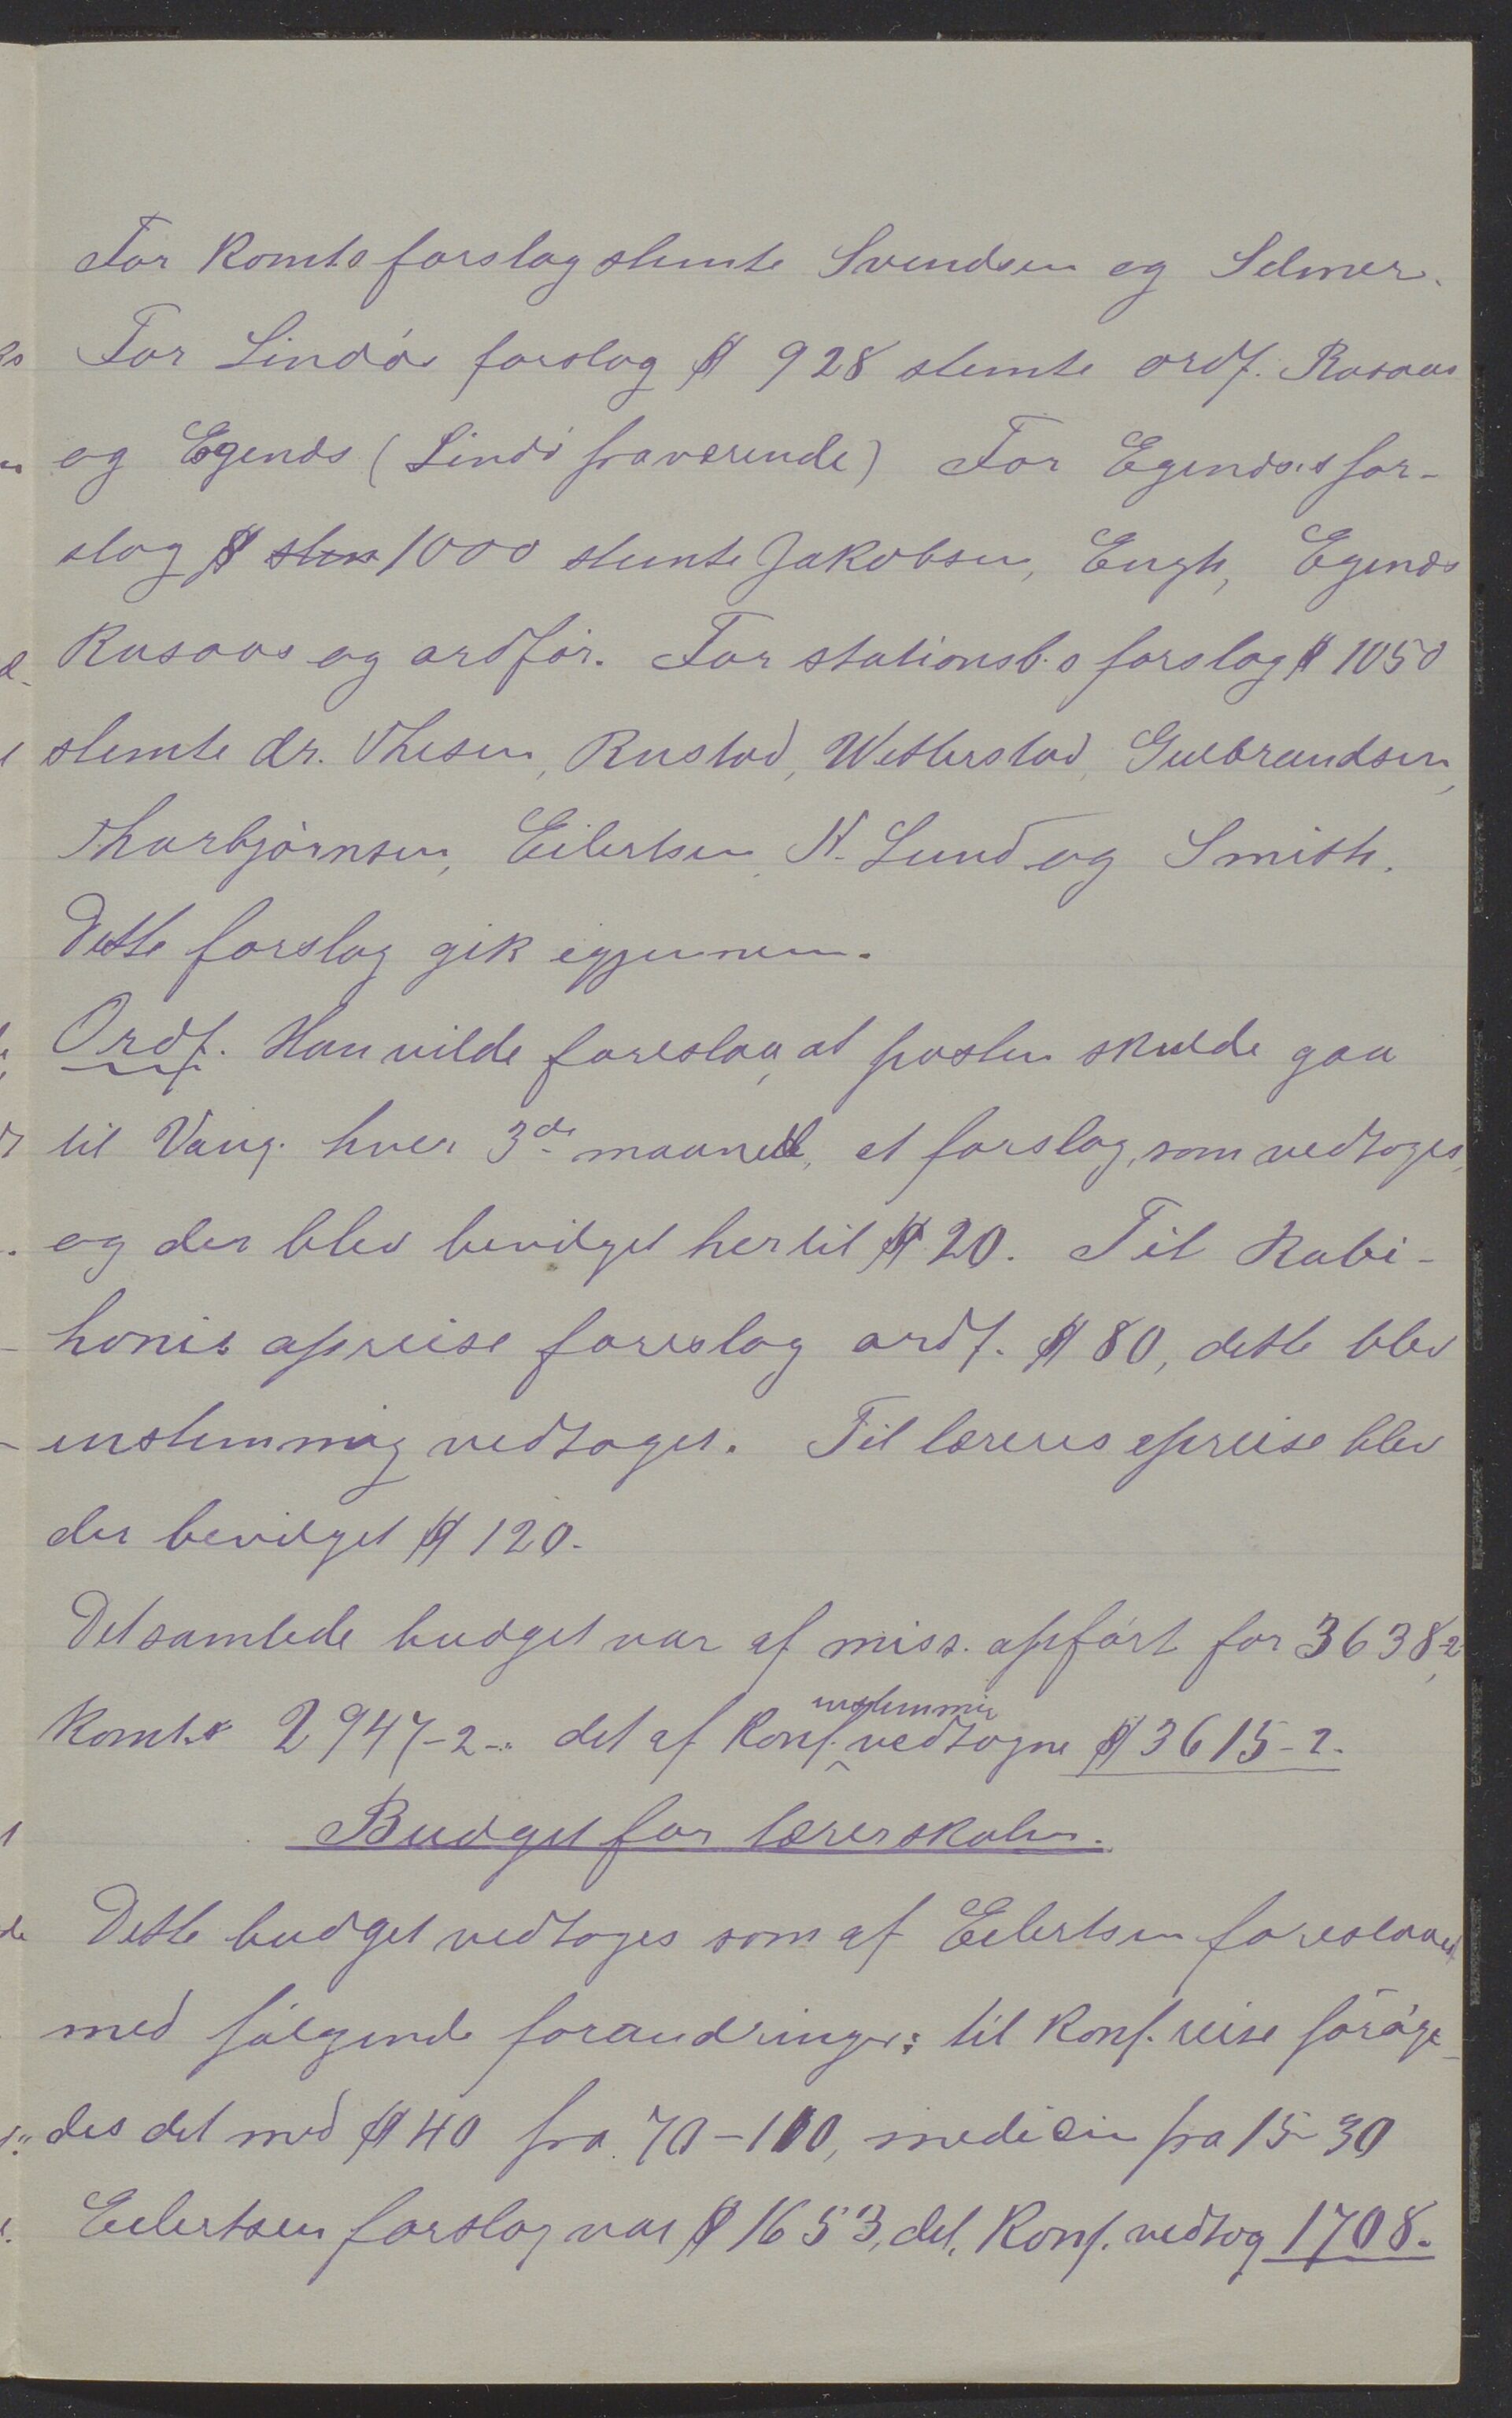 For Komts forslag stemte Svendsen og Selmer.
For Lindös forslag $ 928 stemte ordf. Rosaas
og Egenæs (Lindö fraværende) For Egenæs's for-
slag $ stem 1000 stemte Jakobsen, Engh, Egenæs
Rosaas og ordför. For stationsb.s forslag $ 1050
stemte dr. Thesen, Rustad, Wetterstad, Gulbrandsen,
Thorbjörnsen, Eilertsen, N. Lund og Smith.
Dette forslag gik igjennem.
Ordf. Han vilde foreslaa, at posten skulde gaa
til Vang. hver 3de maaned, et forslag, som vedtoges,
og der blev bevilget hertil $ 20. Til Rabi-
honis opreise foreslog ordf. $ 80, dette blev
enstemmig vedtaget. Til læreres opreise blev
der bevilget $ 120.
Det samlede budget var af miss. opfört for 3638,2
Komt.s 2947-2-. det af Konf. enstemmig vedtagne $ 3615-2.
Budget for lærerskolen.
Dette budget vedtoges som af Eilertsen foreslaaet
med fölgende forandringer: til Konf. reise foröge-
des det med $ 40 fra 70-110, medicin fra 15-30
Eilertsen forslag var $ 1653, det, Konf. vedtog 1708.